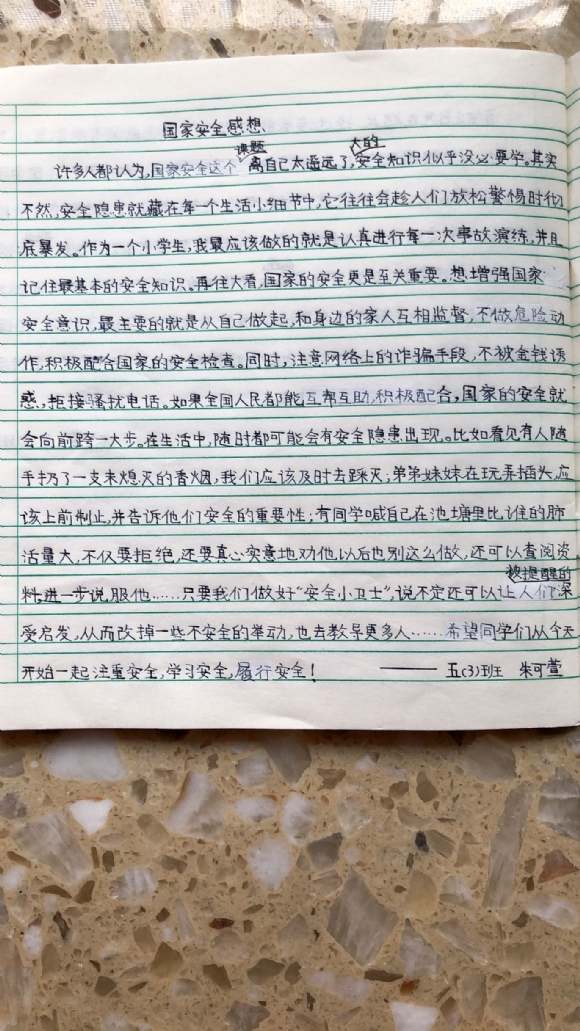 国家安全感想
课题 大的
许多人都认为,国家安全这个离自己太遥远了,安全知识似乎没必要学。其实
不然,安全隐患就藏在每一个生活小细节中,它往往会趁人们放松警惕时彻
底暴发。作为一个小学生,我最应该做的就是认真进行每一次事故演练,并且
记住最基本的安全知识。再往大看,国家的安全更是至关重要。想增强国家
安全意识,最主要的就是从自己做起,和身边的家人互相监督,不做危险动
作,积极配合国家的安全检查。同时,注意网络上的诈骗手段,不被金钱诱
惑,拒接骚扰电话。如果全国人民都能互帮互助,积极配合,国家的安全就
会向前跨一大步。在生活中,随时都可能会有安全隐患出现。比如看见有人随
手扔了一支未熄灭的香烟,我们应该及时去踩灭;弟弟妹妹在玩弄插头,应
该上前制止,并告诉他们安全的重要性;有同学喊自己在池塘里比谁的肺
活量大,不仅要拒绝,还要真心实意地劝他以后也别这么做,还可以查阅资
被提醒的
料,进一步说服他……只要我们做好“安全小卫士”,说不定还可以让人们深
受启发,从而改掉一些不安全的举动,也去教导更多人……希望同学们从今天
开始一起注重安全,学习安全,履行安全!——五(3)班 朱可萱